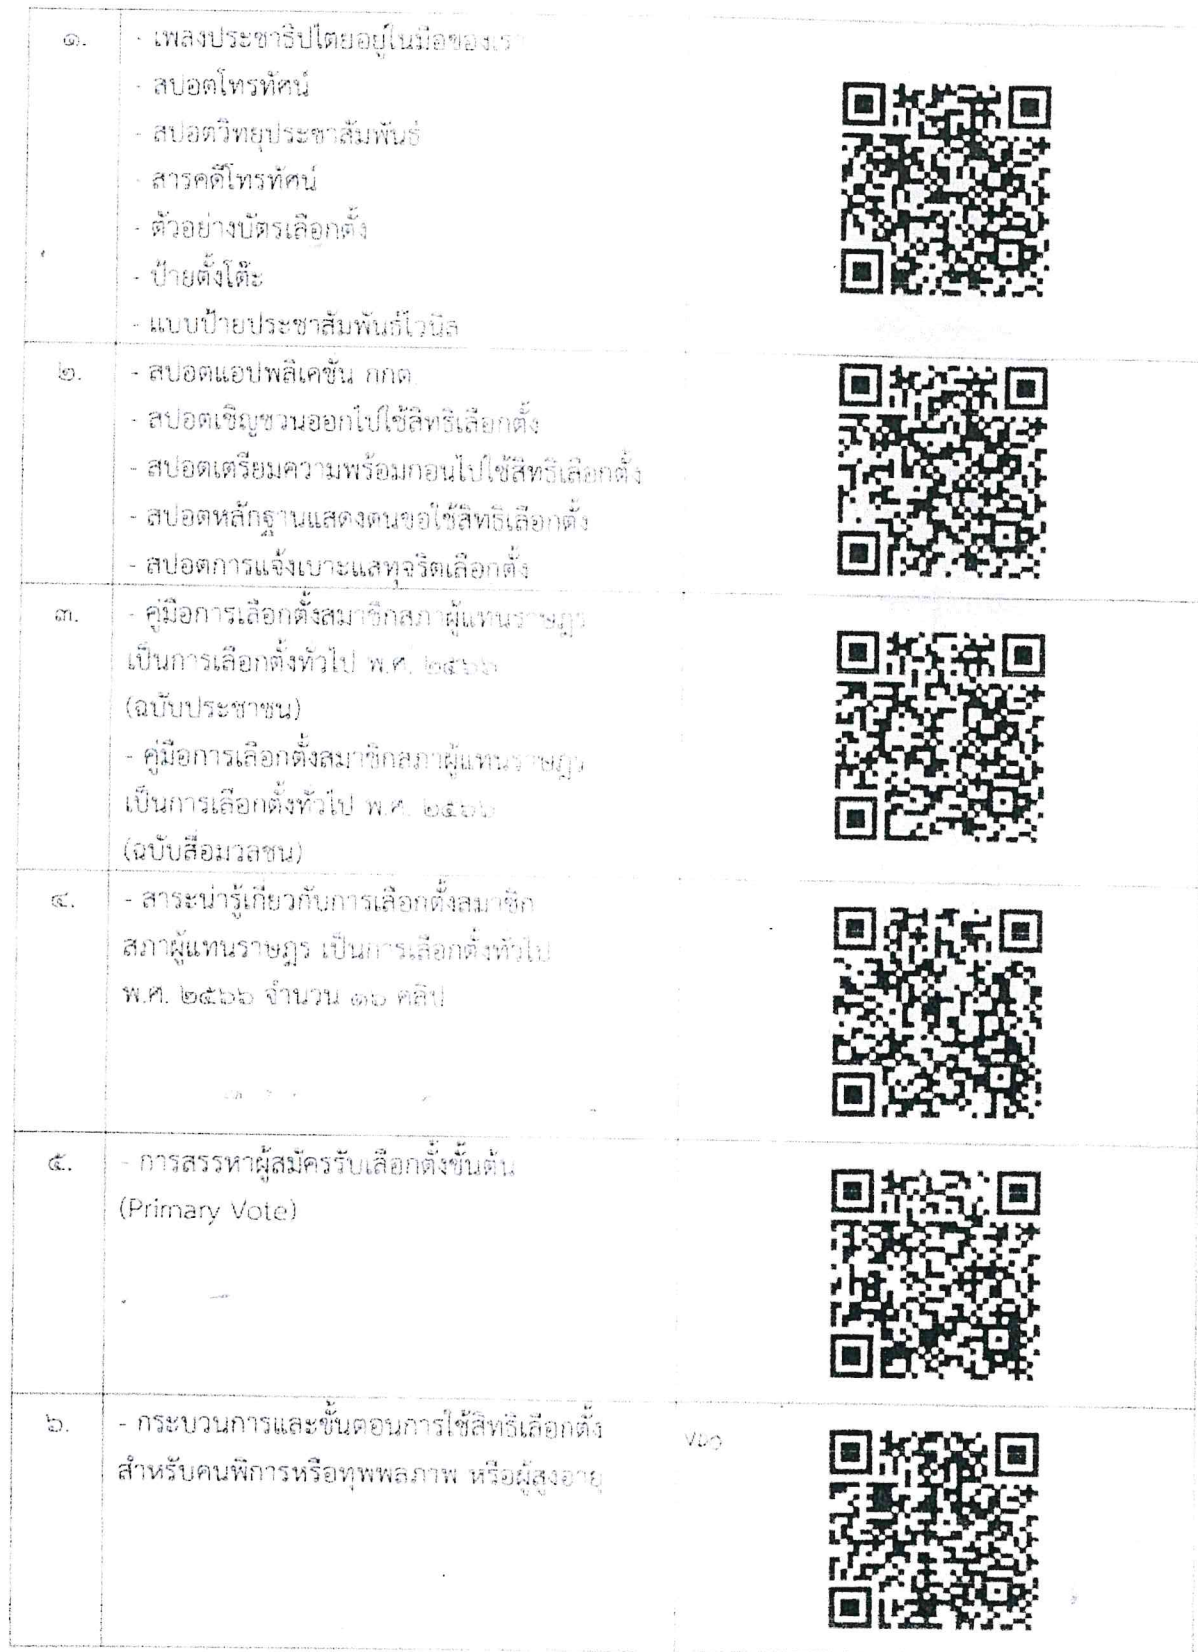 ๑.
- เพลงประชาธิปไตยอยู่ในมือของเรา
- สปอตโทรทัศน์
- สปอตวิทยุประชาสัมพันธ์
- สารคดีโทรทัศน์
- ตัวอย่างบัตรเลือกตั้ง
- ป้ายตั้งโต๊ะ
- แบบป้ายประชาสัมพันธ์ไวนิล
๒.
- สปอตแอปพลิเคชัน กกต.
- สปอตเชิญชวนออกไปใช้สิทธิเลือกตั้ง
- สปอตเตรียมความพร้อมก่อนไปใช้สิทธิเลือกตั้ง
- สปอตหลักฐานแสดงตนขอใช้สิทธิเลือกตั้ง
- สปอตการแจ้งเบาะแสทุจริตเลือกตั้ง
๓.
- คู่มือการเลือกตั้งสมาชิกสภาผู้แทนราษฎร
เป็นการเลือกตั้งทั่วไป พ.ศ. ๒๕๖๖
(ฉบับประชาชน)
- คู่มือการเลือกตั้งสมาชิกสภาผู้แทนราษฎร
เป็นการเลือกตั้งทั่วไป พ.ศ. ๒๕๖๖
(ฉบับสื่อมวลชน)
๔.
- สาระน่ารู้เกี่ยวกับการเลือกตั้งสมาชิก
สภาผู้แทนราษฎร เป็นการเลือกตั้งทั่วไป
พ.ศ. ๒๕๖๖ จำนวน ๑๖ คลิป
๕.
- การสรรหาผู้สมัครรับเลือกตั้งขั้นต้น
(Primary Vote)
๖.
- กระบวนการและขั้นตอนการใช้สิทธิเลือกตั้ง
สำหรับคนพิการหรือทุพพลภาพ หรือผู้สูงอายุ